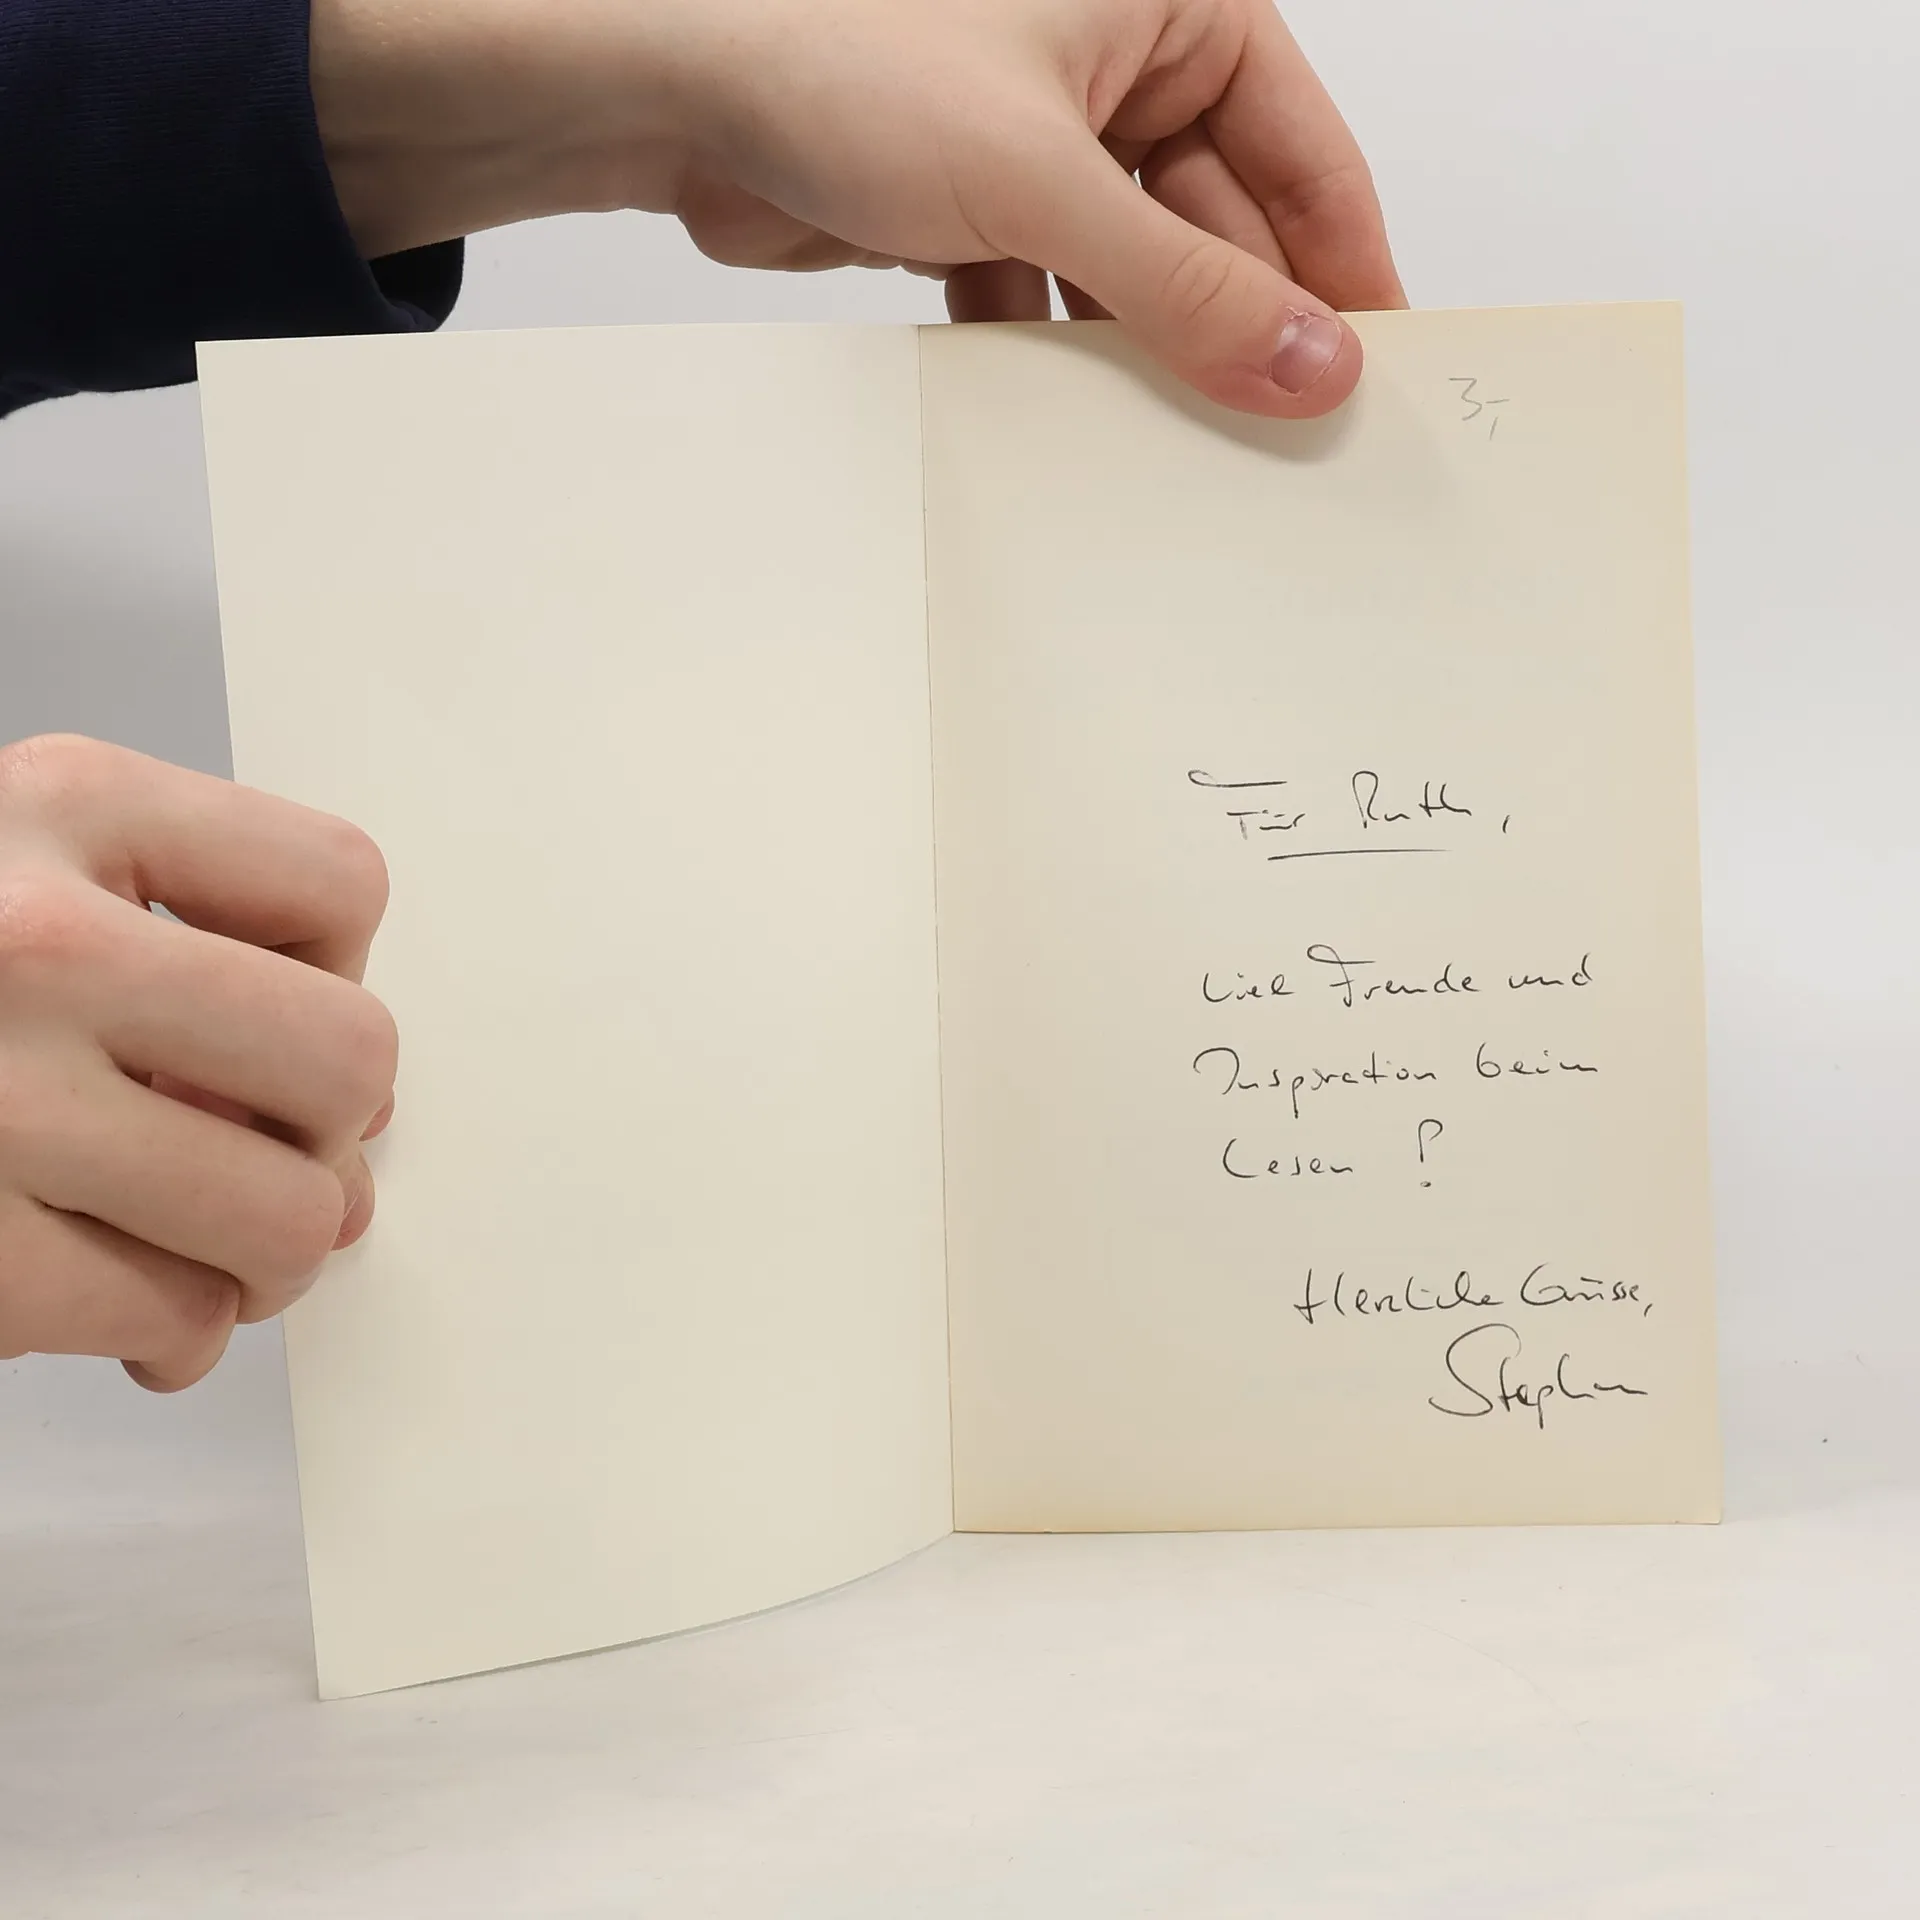 3,-
Für Ruth,
Viel Freude und
Inspiration beim
Lesen!
Herzliche Grüsse,
Stephan